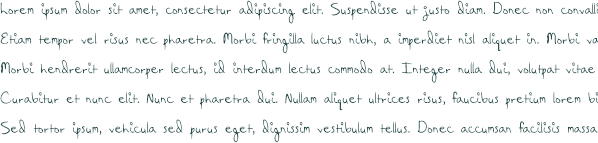 Lorem ipsum dolor sit amet, consectetur adipiscing elit. Suspendisse ut justo diam. Donec non convalli
Etiam tempor vel risus nec pharetra. Morbi fringilla luctus nibh, a imperdiet nisl aliquet in. Morbi va
Morbi hendrerit ullamcorper lectus, id interdum lectus commodo at. Integer nulla dui, volutpat vitae
Curabitur et nunc elit. Nunc et pharetra dui. Nullam aliquet ultrices risus, faucibus pretium lorem bi
Sed tortor ipsum, vehicula sed purus eget, dignissim vestibulum tellus. Donec accumsan facilisis massa